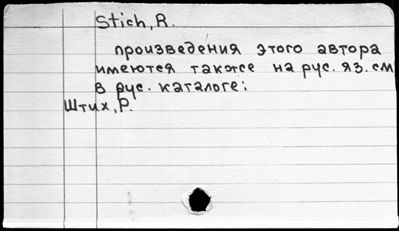 Stich, R.
произведения этого автора
имеются также на рус. яз. см
в рус. каталоге:
Штих, Р.